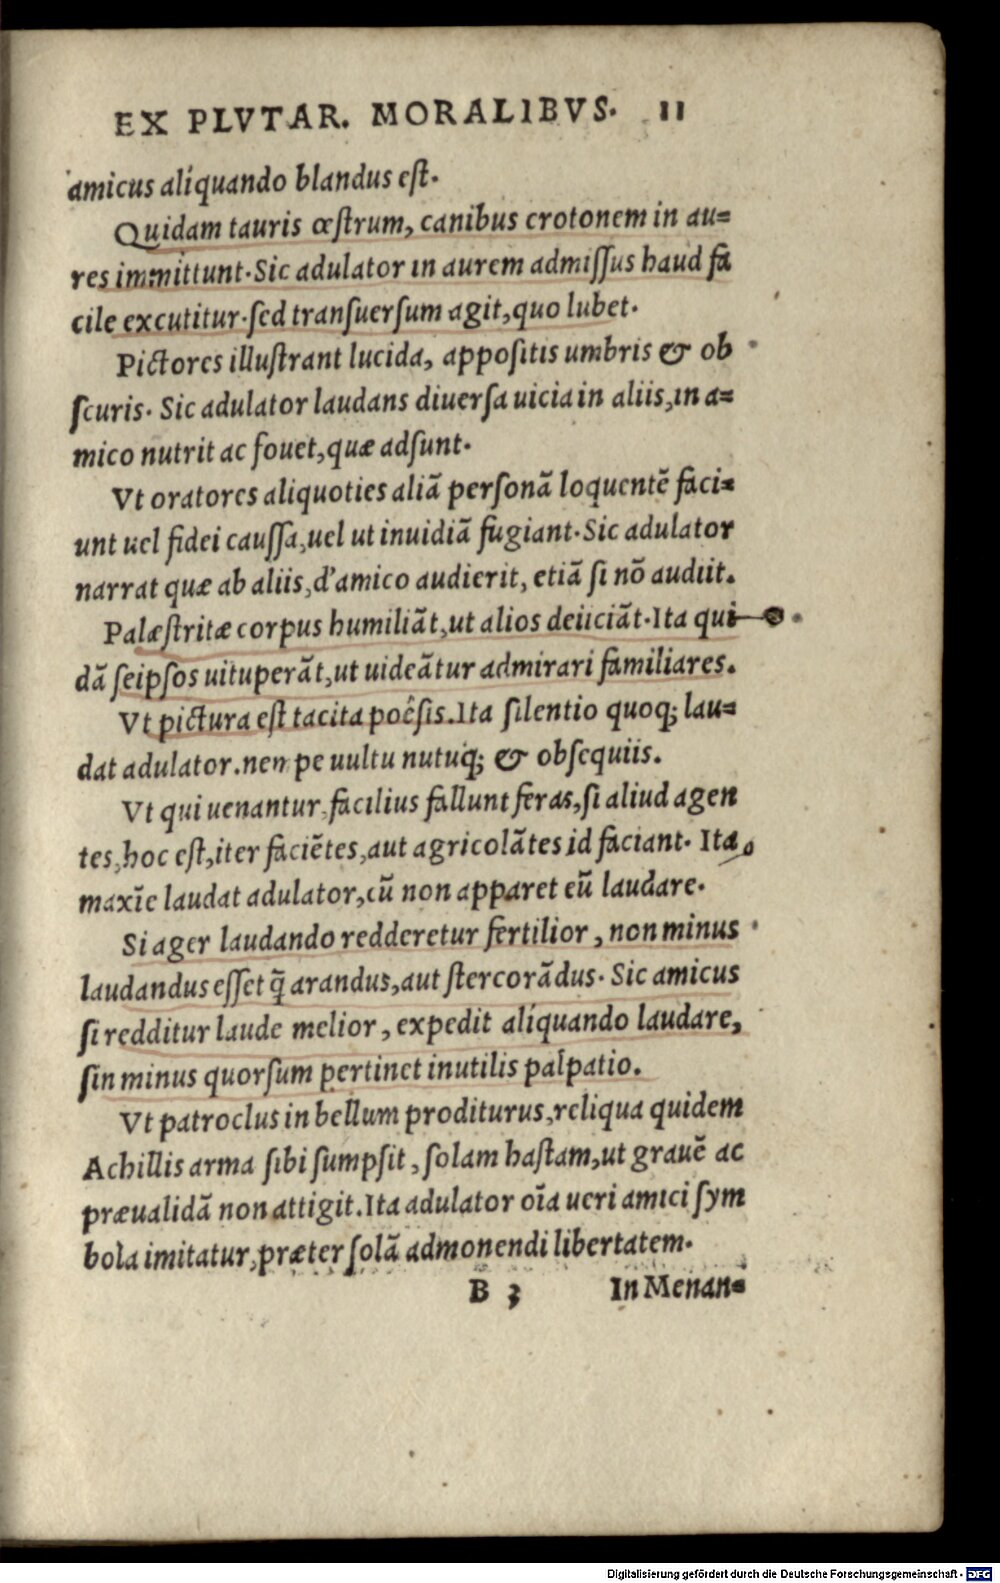 EX PLVTAR. MORALIBVS. 11
amicus aliquando blandus eſt.
Quidam tauris œſtrum, canibus crotonem in au=
res immittunt. Sic adulator in aurem admiſſus haud fa
cile excutitur. ſed tranſuerſum agit, quo lubet.
Pictores illuſtrant lucida, appoſitis umbris & ob
ſcuris. Sic adulator laudans diuerſa uicia in aliis, in a=
mico nutrit ac fouet, quæ adſunt.
Vt oratores aliquoties aliā perſonā loquentē faci=
unt uel fidei cauſſa, uel ut inuidiā fugiant. Sic adulator
narrat quæ ab aliis, d'amico audierit, etiā ſi nō audiit.
Palæſtritæ corpus humiliāt, ut alios deiiciāt. Ita qui
dā ſeipſos uituperāt, ut uideātur admirari familiares.
Vt pictura eſt tacita poêſis. Ita ſilentio quoq; lau=
dat adulator. nempe uultu nutuq; & obſequiis.
Vt qui uenantur, facilius fallunt feras, ſi aliud agen
tes, hoc eſt, iter faciētes, aut agricolātes id faciant. Ita
maxīe laudat adulator, cū non apparet eū laudare.
Si ager laudando redderetur fertilior, non minus
laudandus eſſet q̄ arandus, aut ſtercorādus. Sic amicus
ſi redditur laude melior, expedit aliquando laudare,
ſin minus quorſum pertinet inutilis palpatio.
Vt patroclus in bellum proditurus, reliqua quidem
Achillis arma ſibi ſumpſit, ſolam haſtam, ut grauē ac
præualidā non attigit. Ita adulator oīa ueri amici ſym
bola imitatur, præter ſolā admonendi libertatem.
B 3 In Menan=
Digitalisierung gefördert durch die Deutsche Forschungsgemeinschaft - DFG